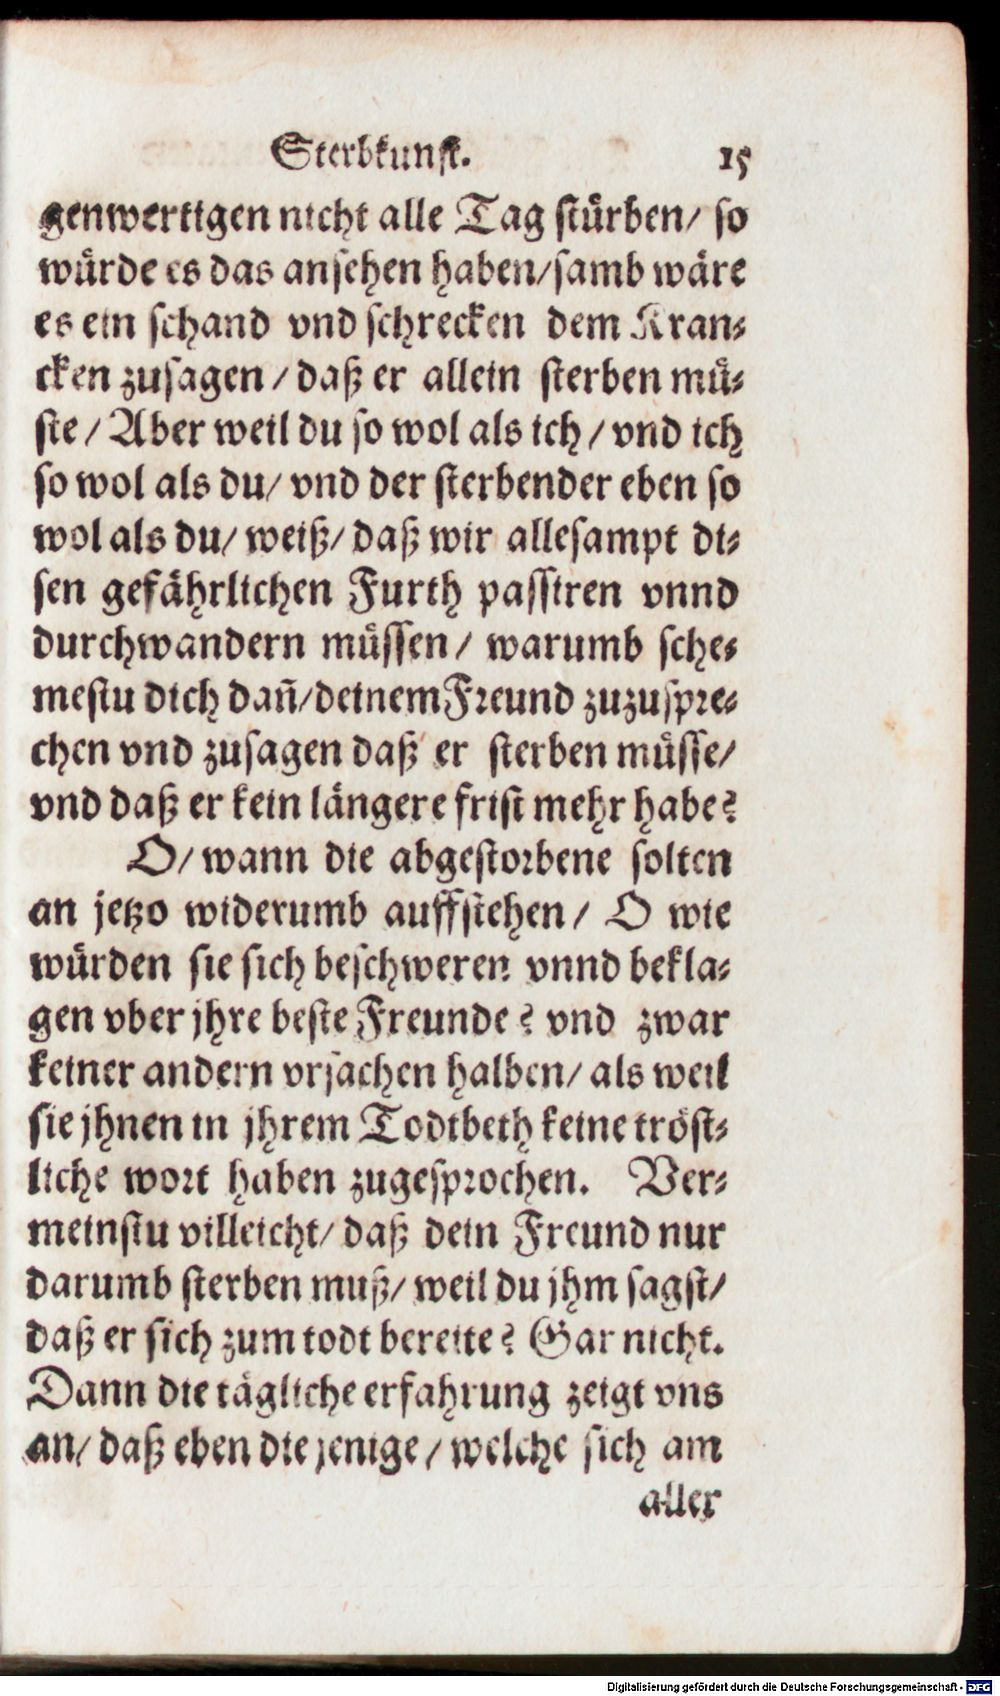 Sterbkunst. 15
genwertigen nicht alle Tag stürben/ so
würde es das ansehen haben/samb wäre
es ein schand vnd schrecken dem Kran-
cken zusagen / daß er allein sterben mü-
ste / Aber weil du so wol als ich / vnd ich
so wol als du/ vnd der sterbender eben so
wol als du/ weiß/ daß wir allesampt di-
sen gefährlichen Furth passiren vnnd
durchwandern müssen/ warumb sche-
mestu dich dañ/deinem Freund zuzuspre-
chen vnd zusagen daß er sterben müsse/
vnd daß er kein längere frist mehr habe?
O/ wann die abgestorbene solten
an jetzo widerumb auffstehen/ O wie
würden sie sich beschweren vnnd bekla-
gen vber jhre beste Freunde? vnd zwar
keiner andern vrsachen halben/ als weil
sie jhnen in jhrem Todtbeth keine tröst-
liche wort haben zugesprochen. Ver-
meinstu villeicht/ daß dein Freund nur
darumb sterben muß/ weil du jhm sagst/
daß er sich zum todt bereite? Gar nicht.
Dann die tägliche erfahrung zeigt vns
an/ daß eben die jenige / welche sich am
aller
Digitalisierung gefördert durch die Deutsche Forschungsgemeinschaft - DFG